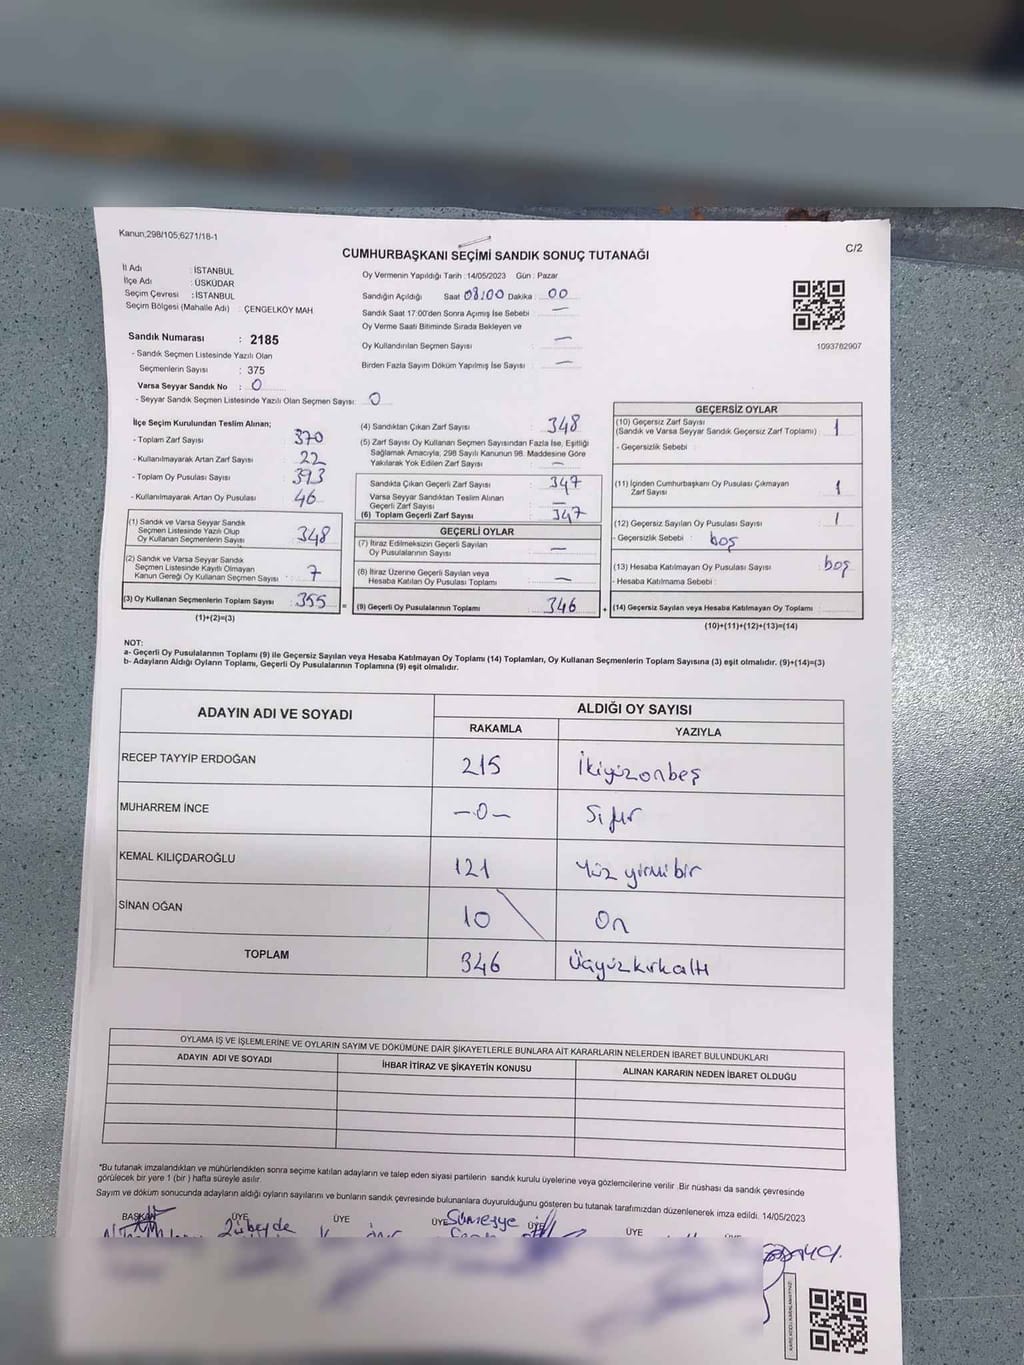 Kanun,298/105,6271/18-1
CUMHURBAŞKANI SEÇİMİ SANDIK SONUÇ TUTANAĞI
C/2
İl Adı : İSTANBUL
İlçe Adı : ÜSKÜDAR
Seçim Çevresi : İSTANBUL
Seçim Bölgesi (Mahalle Adı) : ÇENGELKÖY MAH
Oy Vermenin Yapıldığı Tarih :14/05/2023 Gün : Pazar
Sandığın Açıldığı Saat 08:00 Dakika : 00
Sandık Saat 17:00'den Sonra Açımış İse Sebebi : —
Oy Verme Saati Bitiminde Sırada Bekleyen ve
Oy Kullandırılan Seçmen Sayısı : —
Birden Fazla Sayım Döküm Yapılmış İse Sayısı : —
1093782907
Sandık Numarası : 2185
- Sandık Seçmen Listesinde Yazılı Olan
Seçmenlerin Sayısı : 375
Varsa Seyyar Sandık No : 0
- Seyyar Sandık Seçmen Listesinde Yazılı Olan Seçmen Sayısı: 0
İlçe Seçim Kurulundan Teslim Alınan;
- Toplam Zarf Sayısı : 370
- Kullanılmayarak Artan Zarf Sayısı : 22
- Toplam Oy Pusulası Sayısı : 393
- Kullanılmayarak Artan Oy Pusulası : 46
(1) Sandık ve Varsa Seyyar Sandık
Seçmen Listesinde Yazılı Olup
Oy Kullanan Seçmenlerin Sayısı : 348
(2) Sandık ve Varsa Seyyar Sandık
Seçmen Listesinde Kayıtlı Olmayan
Kanun Gereği Oy Kullanan Seçmen Sayısı : 7
(3) Oy Kullanan Seçmenlerin Toplam Sayısı : 355 =
(1)+(2)=(3)
(4) Sandıktan Çıkan Zarf Sayısı : 348
(5) Zarf Sayısı Oy Kullanan Seçmen Sayısından Fazla İse, Eşitliği
Sağlamak Amacıyla, 298 Sayılı Kanunun 98. Maddesine Göre
Yakılarak Yok Edilen Zarf Sayısı : —
Sandıkta Çıkan Geçerli Zarf Sayısı : 347
Varsa Seyyar Sandıktan Teslim Alınan
Geçerli Zarf Sayısı : —
(6) Toplam Geçerli Zarf Sayısı : 347
GEÇERLİ OYLAR
(7) İtiraz Edilmeksizin Geçerli Sayılan
Oy Pusulalarının Sayısı : —
(8) İtiraz Üzerine Geçerli Sayılan veya
Hesaba Katılan Oy Pusulası Toplamı : —
(9) Geçerli Oy Pusulalarının Toplamı : 346 +
GEÇERSİZ OYLAR
(10) Geçersiz Zarf Sayısı : 1
(Sandık ve Varsa Seyyar Sandık Geçersiz Zarf Toplamı)
- Geçersizlik Sebebi :
(11) İçinden Cumhurbaşkanı Oy Pusulası Çıkmayan
Zarf Sayısı : 1
(12) Geçersiz Sayılan Oy Pusulası Sayısı : 1
- Geçersizlik Sebebi : boş
(13) Hesaba Katılmayan Oy Pusulası Sayısı : boş
- Hesaba Katılmama Sebebi :
(14) Geçersiz Sayılan veya Hesaba Katılmayan Oy Toplamı :
(10)+(11)+(12)+(13)=(14)
NOT:
a- Geçerli Oy Pusulalarının Toplamı (9) ile Geçersiz Sayılan veya Hesaba Katılmayan Oy Toplamı (14) Toplamları, Oy Kullanan Seçmenlerin Toplam Sayısına (3) eşit olmalıdır. (9)+(14)=(3)
b- Adayların Aldığı Oyların Toplamı, Geçerli Oy Pusulalarının Toplamına (9) eşit olmalıdır.
ADAYIN ADI VE SOYADI
ALDIĞI OY SAYISI
RAKAMLA YAZIYLA
RECEP TAYYİP ERDOĞAN 215 İkiyüzonbeş
MUHARREM İNCE -0- Sıfır
KEMAL KILIÇDAROĞLU 121 Yüz yirmi bir
SİNAN OĞAN 10 On
TOPLAM 346 Üçyüzkırkaltı
OYLAMA İŞ VE İŞLEMLERİNE VE OYLARIN SAYIM VE DÖKÜMÜNE DAİR ŞİKAYETLERLE BUNLARA AİT KARARLARIN NELERDEN İBARET BULUNDUKLARI
ADAYIN ADI VE SOYADI İHBAR İTİRAZ VE ŞİKAYETİN KONUSU ALINAN KARARIN NEDEN İBARET OLDUĞU
*Bu tutanak imzalandıktan ve mühürlendikten sonra seçime katılan adayların ve talep eden siyasi partilerin sandık kurulu üyelerine veya gözlemcilerine verilir .Bir nüshası da sandık çevresinde
görülecek bir yere 1 (bir ) hafta süreyle asılır.
Sayım ve döküm sonucunda adayların aldığı oyların sayılarını ve bunların sandık çevresinde bulunanlara duyurulduğunu gösteren bu tutanak tarafımızdan düzenlenerek imza edildi. 14/05/2023
BAŞKAN ÜYE ÜYE ÜYE ÜYE ÜYE ÜYE
Zübeyde Sümeyye